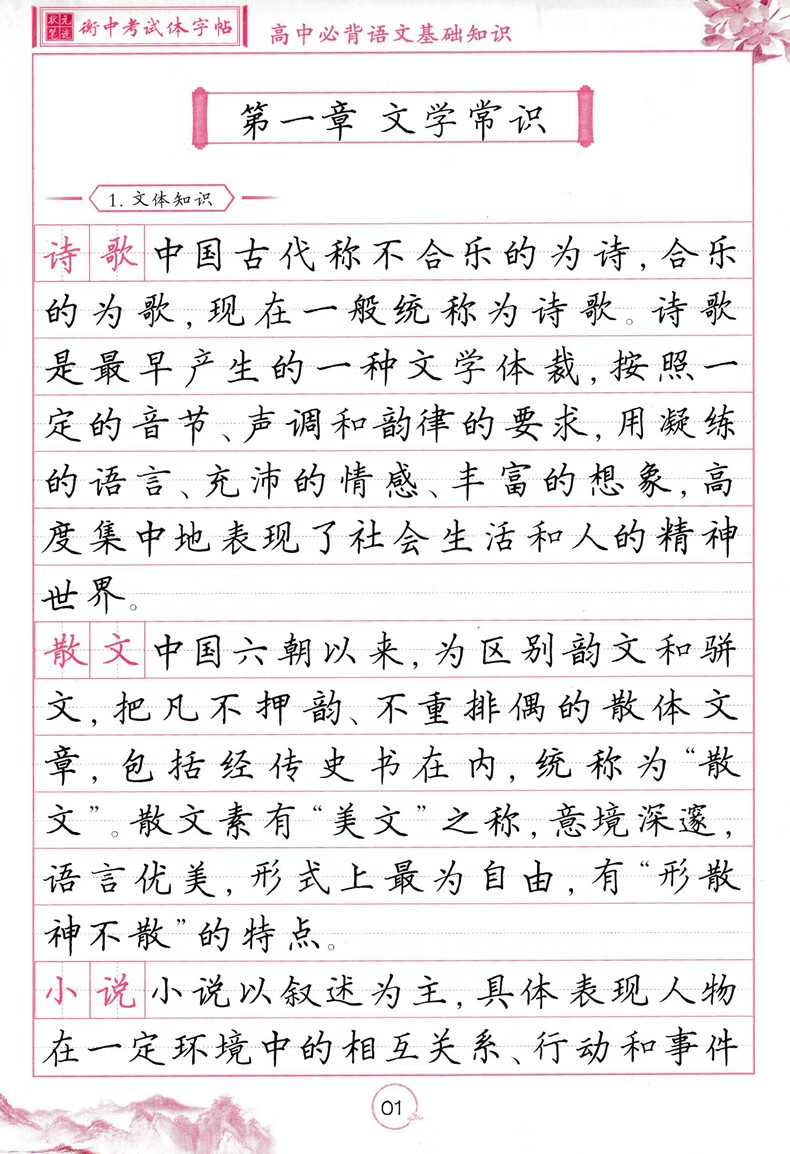 状元笔迹 衡中考试体字帖 高中必背语文基础知识
第一章 文学常识
1. 文体知识
诗歌中国古代称不合乐的为诗,合乐
的为歌,现在一般统称为诗歌。诗歌
是最早产生的一种文学体裁,按照一
定的音节、声调和韵律的要求,用凝练
的语言、充沛的情感、丰富的想象,高
度集中地表现了社会生活和人的精神
世界。
散文中国六朝以来,为区别韵文和骈
文,把凡不押韵、不重排偶的散体文
章,包括经传史书在内,统称为“散
文”。散文素有“美文”之称,意境深邃,
语言优美,形式上最为自由,有“形散
神不散”的特点。
小说小说以叙述为主,具体表现人物
在一定环境中的相互关系、行动和事件
01